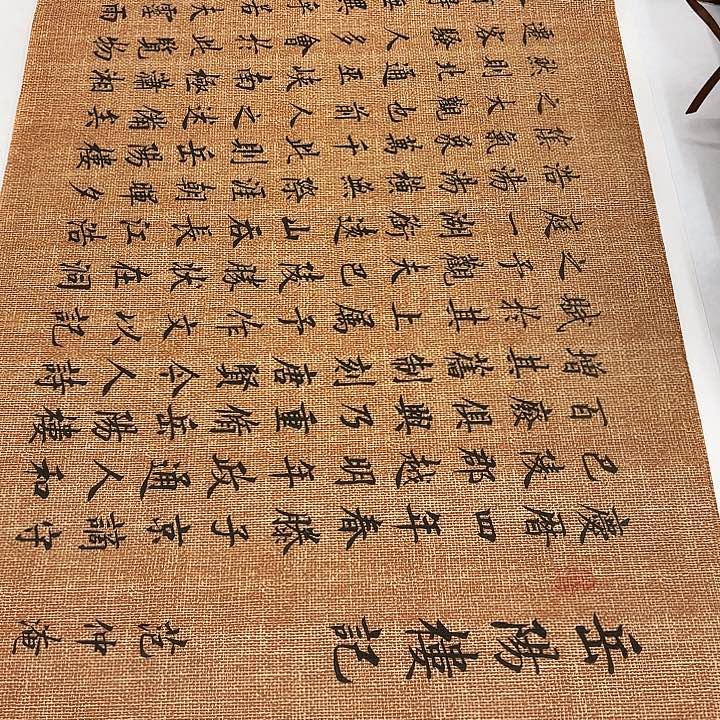 岳陽樓記 范仲淹
慶曆四年春滕子京謫守
巴陵郡越明年政通人和
百廢俱興乃重脩岳陽樓
增其舊制刻唐賢今人詩
賦於其上屬予作文以記
之予觀夫巴陵勝狀在洞
庭一湖銜遠山吞長江浩
浩湯湯橫無際涯朝暉夕
陰氣象萬千此則岳陽樓
之大觀也前人之述備矣
然則北通巫峽南極瀟湘
遷客騷人多會於此覽物
異乎若夫霪雨